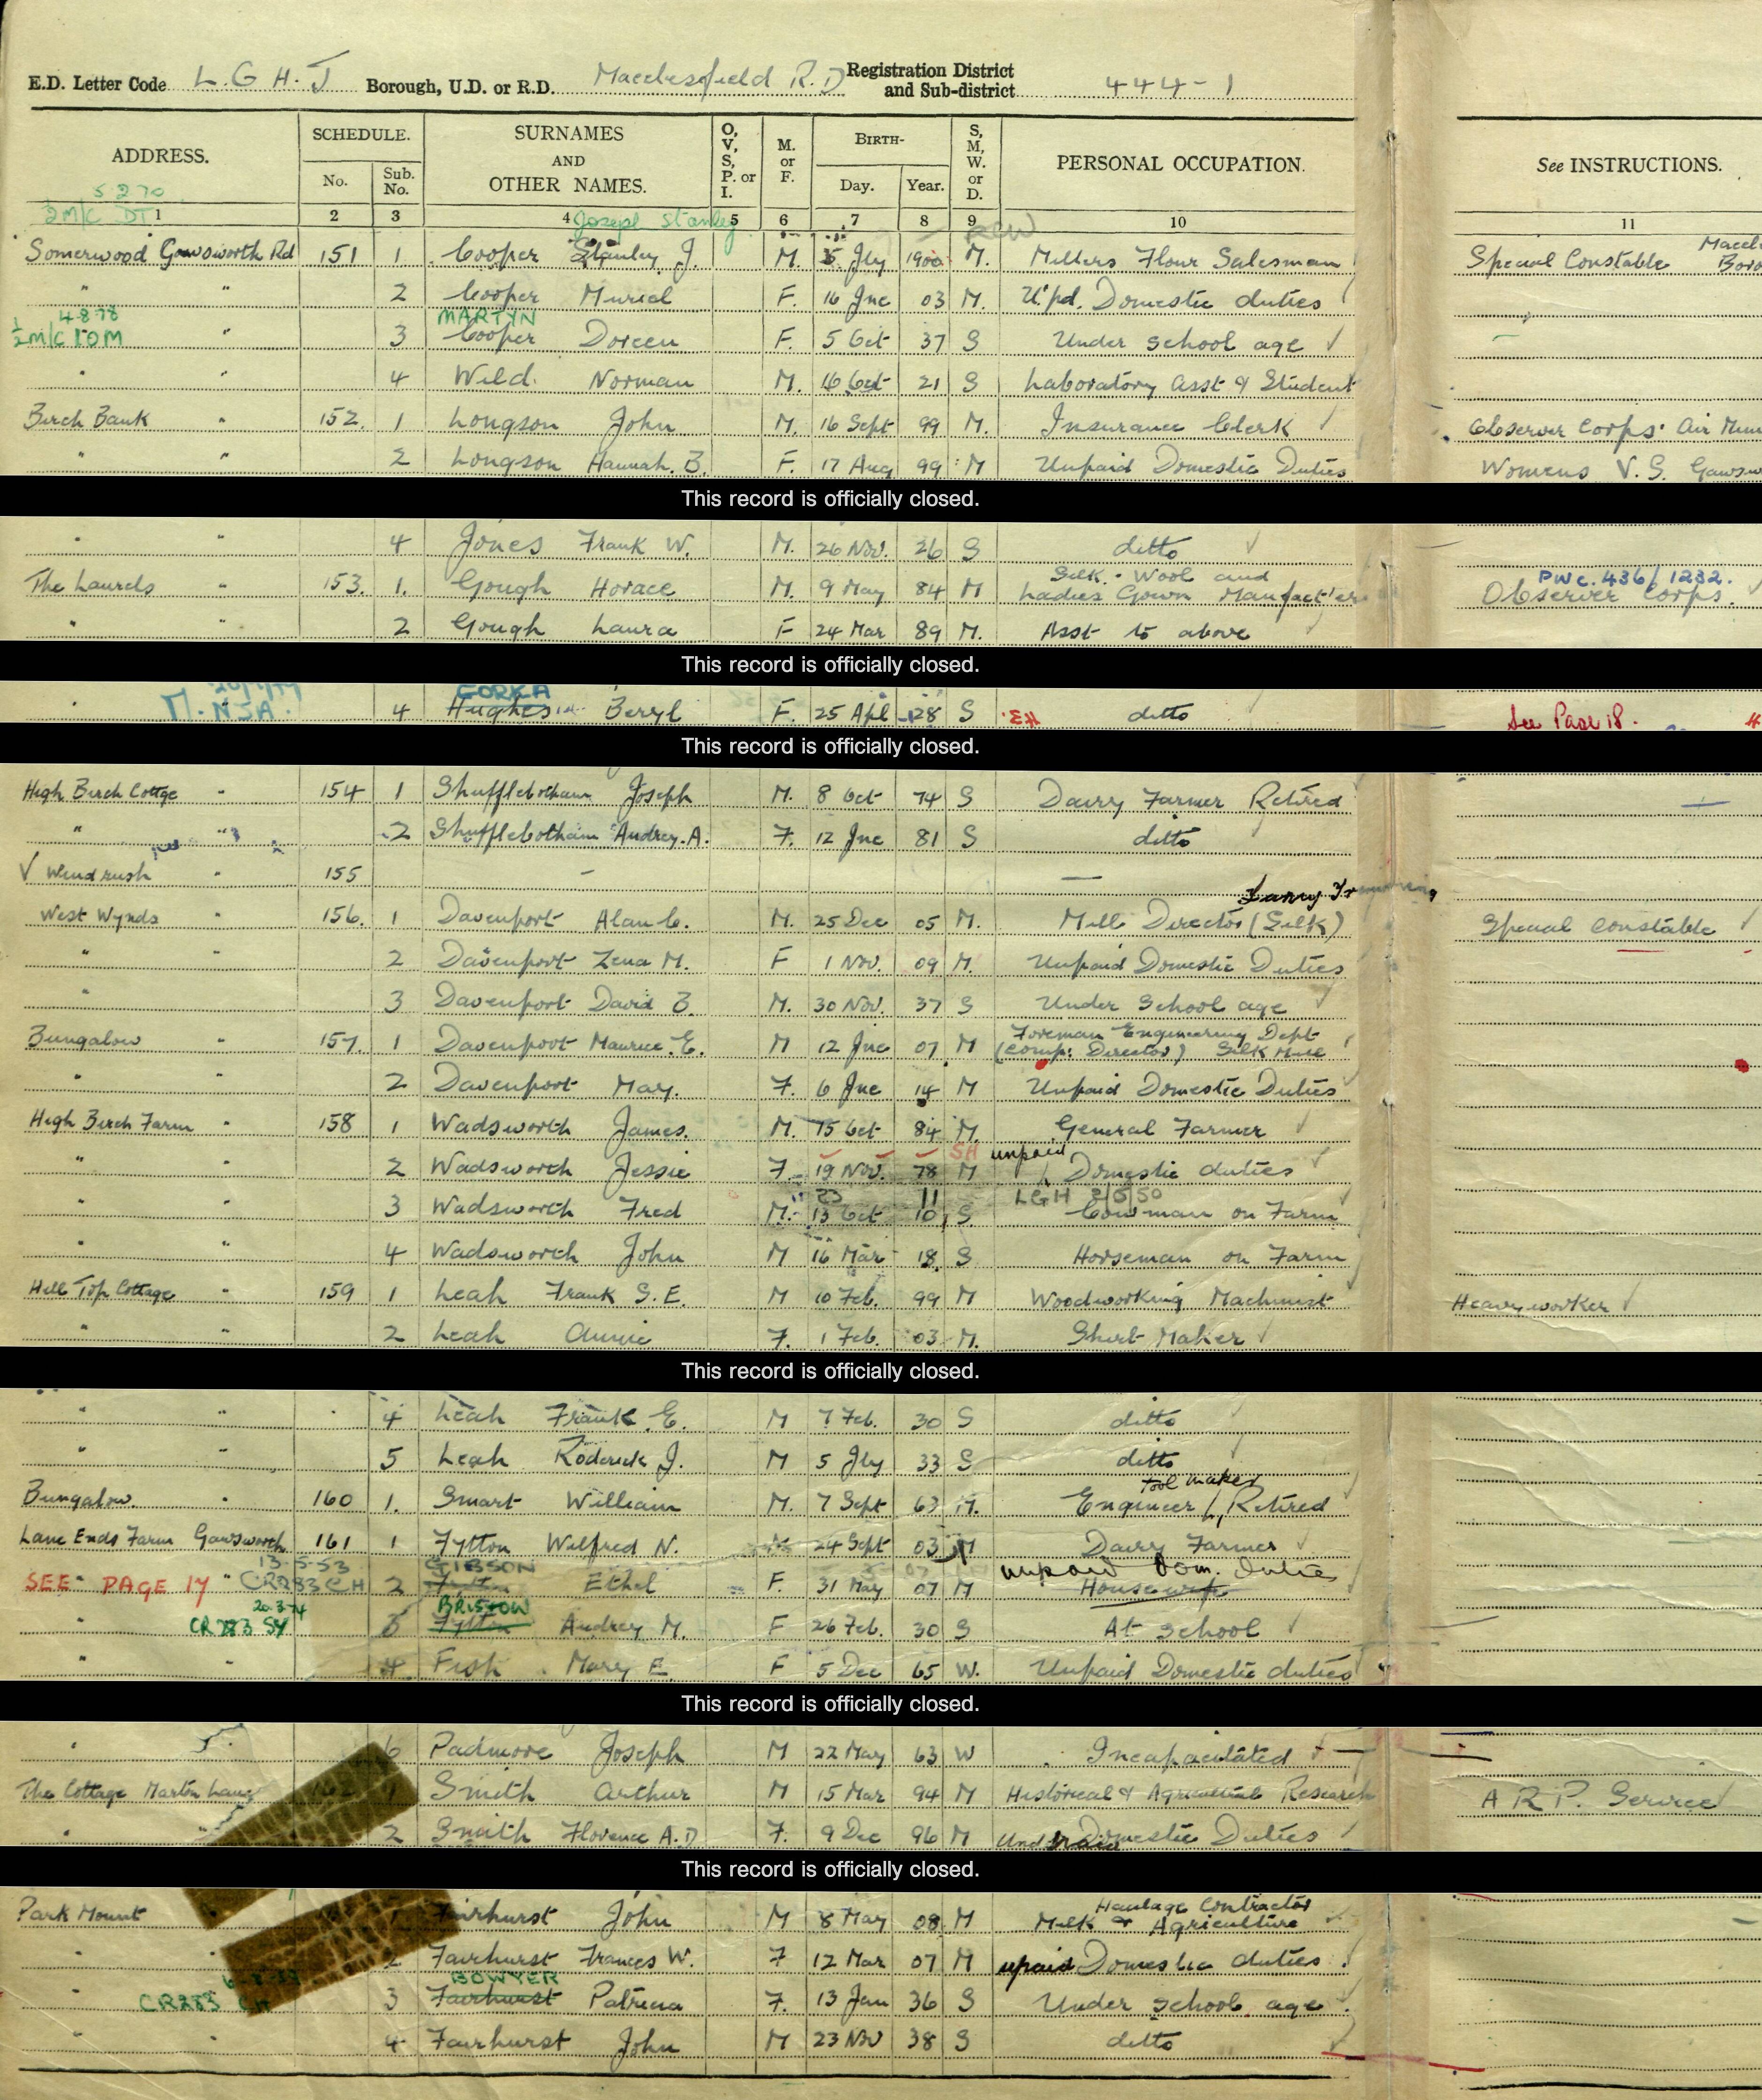 E.D. Letter Code L G H. J Borough, U.D. or R.D. Macclesfield R.D Registration District and Sub-district 444-1
ADDRESS. SCHEDULE. No. Sub. No. SURNAMES AND OTHER NAMES. O, V, S, P. or I. M. or F. BIRTH- Day. Year. S, M, W. or D. PERSONAL OCCUPATION. See INSTRUCTIONS.
5 2 70
2M/C DT 1 2 3 4 Joseph Stanley 5 6 7 8 9 10 11
Somerwood Gawsworth Rd 151 1 Cooper Stanley J. M. 5 Jly 1900 M. Millers Flour Salesman Special Constable
" " 2 Cooper Muriel F. 16 Jne 03 M. U'pd. Domestic duties
4 8 78 MARTYN
" 3 Cooper Doreen F. 5 Oct 37 S Under school age
" " 4 Wild. Norman M. 16 Oct 21 S Laboratory Asst & Student
Birch Bank " 152. 1 Longson John M. 16 Sept 99 M. Insurance Clerk Observer Corps. Air
" " 2 Longson Hannah. B. F. 17 Aug 99 M Unpaid Domestic Duties Womens V. S.
This record is officially closed.
" " 4 Jones Frank W. M. 26 Nov. 26 S ditto
Silk. Wool and PWC. 436/1232.
The Laurels " 153. 1. Gough Horace M. 9 May 84 M Ladies Gown Manufact'er Observer Corps.
" " 2 Gough Laura F 24 Mar 89 M. Asst to above
This record is officially closed.
M. NSA. CORKA
" 4 Hughes Beryl F. 25 Apl 28 S ditto See Page 18.
This record is officially closed.
High Birch Cottge " 154 1 Shufflebotham Joseph M. 8 Oct 74 S Dairy Farmer Retired
" " 2 Shufflebotham Audrey. A. F. 12 Jne 81 S ditto
Windrush " 155 - —
West Wynds " 156. 1 Davenport Alan C. M. 25 Dec 05 M. Mill Director (Silk) Special Constable
" " 2 Davenport Zena M. F 1 Nov. 09 M. Unpaid Domestic Duties
" 3 Davenport David B. M. 30 Nov. 37 S Under School age
Foreman Engineering Dept
Bungalow " 157. 1 Davenport Maurice. E. M 12 Jne 07 M (Comp: Director) Silk
" " 2 Davenport May. F. 6 Jne 14 M Unpaid Domestic Duties
High Birch Farm " 158 1 Wadsworth James. M. 15 Oct 84 M. General Farmer
SH unpaid
" " 2 Wadsworth Jessie F. 19 Nov. 78 M Domestic duties
23 11 LGH 2/5/50
" " 3 Wadsworth Fred M. 13 Oct 10 S Cowman on Farm
" " 4 Wadsworth John M 16 Mar 18. S Horseman on Farm
Hill Top Cottage " 159 1 Leah Frank S. E. M 10 Feb. 99 M Woodworking Machinist Heavy worker
" " 2 Leah Annie F. 1 Feb. 03 M. Shirt Maker
This record is officially closed.
" " 4 Leah Frank E. M 7 Feb. 30 S ditto
" " 5 Leah Roderick J. M 5 Jly 33 S ditto
Tool maker
Bungalow. " 160 1. Smart William M. 7 Sept 63 M. Engineer, Retired
Lane Ends Farm Gawsworth 161 1 Fytton Wilfred N. M 24 Sept 03 M Dairy Farmer
13-5-53 GIBSON unpaid Dom. Duties
SEE PAGE 17 CR283 CH 2 Fytton Ethel F. 31 May 07 M Housewife
20.3.74 BRISTOW
" CR 283 SY 3 Fytton Audrey M. F 26 Feb. 30 S At School
" " 4 Fish Mary E. F 5 Dec 65 W. Unpaid Domestic duties
This record is officially closed.
" 6 Padmore Joseph M 22 May 63 W Incapacitated
The Cottage Marton Lane Smith Arthur M 15 Mar 94 M Historical & Agricultural Research A R P. Service
" 2 Smith Florence A.D F. 9 Dec 96 M Domestic Duties
This record is officially closed.
Haulage Contractor
Park Mount Fairhurst John M 8 May 08 M Milk & Agriculture
" 2 Fairhurst Frances W. F 12 Mar 07 M unpaid Domestic duties
BOWYER
CR283 CH 3 Fairhurst Patricia F. 13 Jan 36 S Under school age
" " 4 Fairhurst John M 23 Nov 38 S ditto